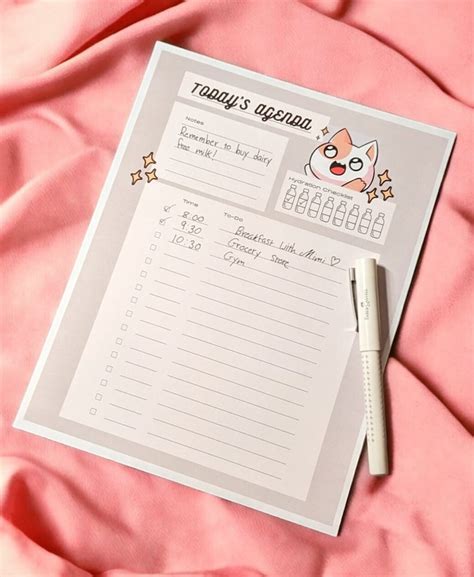 TODAY'S AGENDA
Notes
Remember to buy dairy
free milk!
Hydration Checklist
Time To-Do
8:00 Breakfast with Mimi ♡
9:30 Grocery store
10:30 Gym